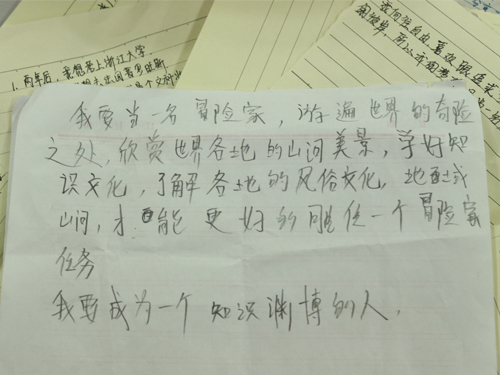 1. 两年后，我想考上浙江大学.
我要当一名冒险家，游遍世界的奇险
之处，欣赏世界各地的山河美景，学好知
识文化，了解各地的风俗文化，地
山河，才能更好的胜任一个冒险家
任务
我要成为一个知识渊博的人.